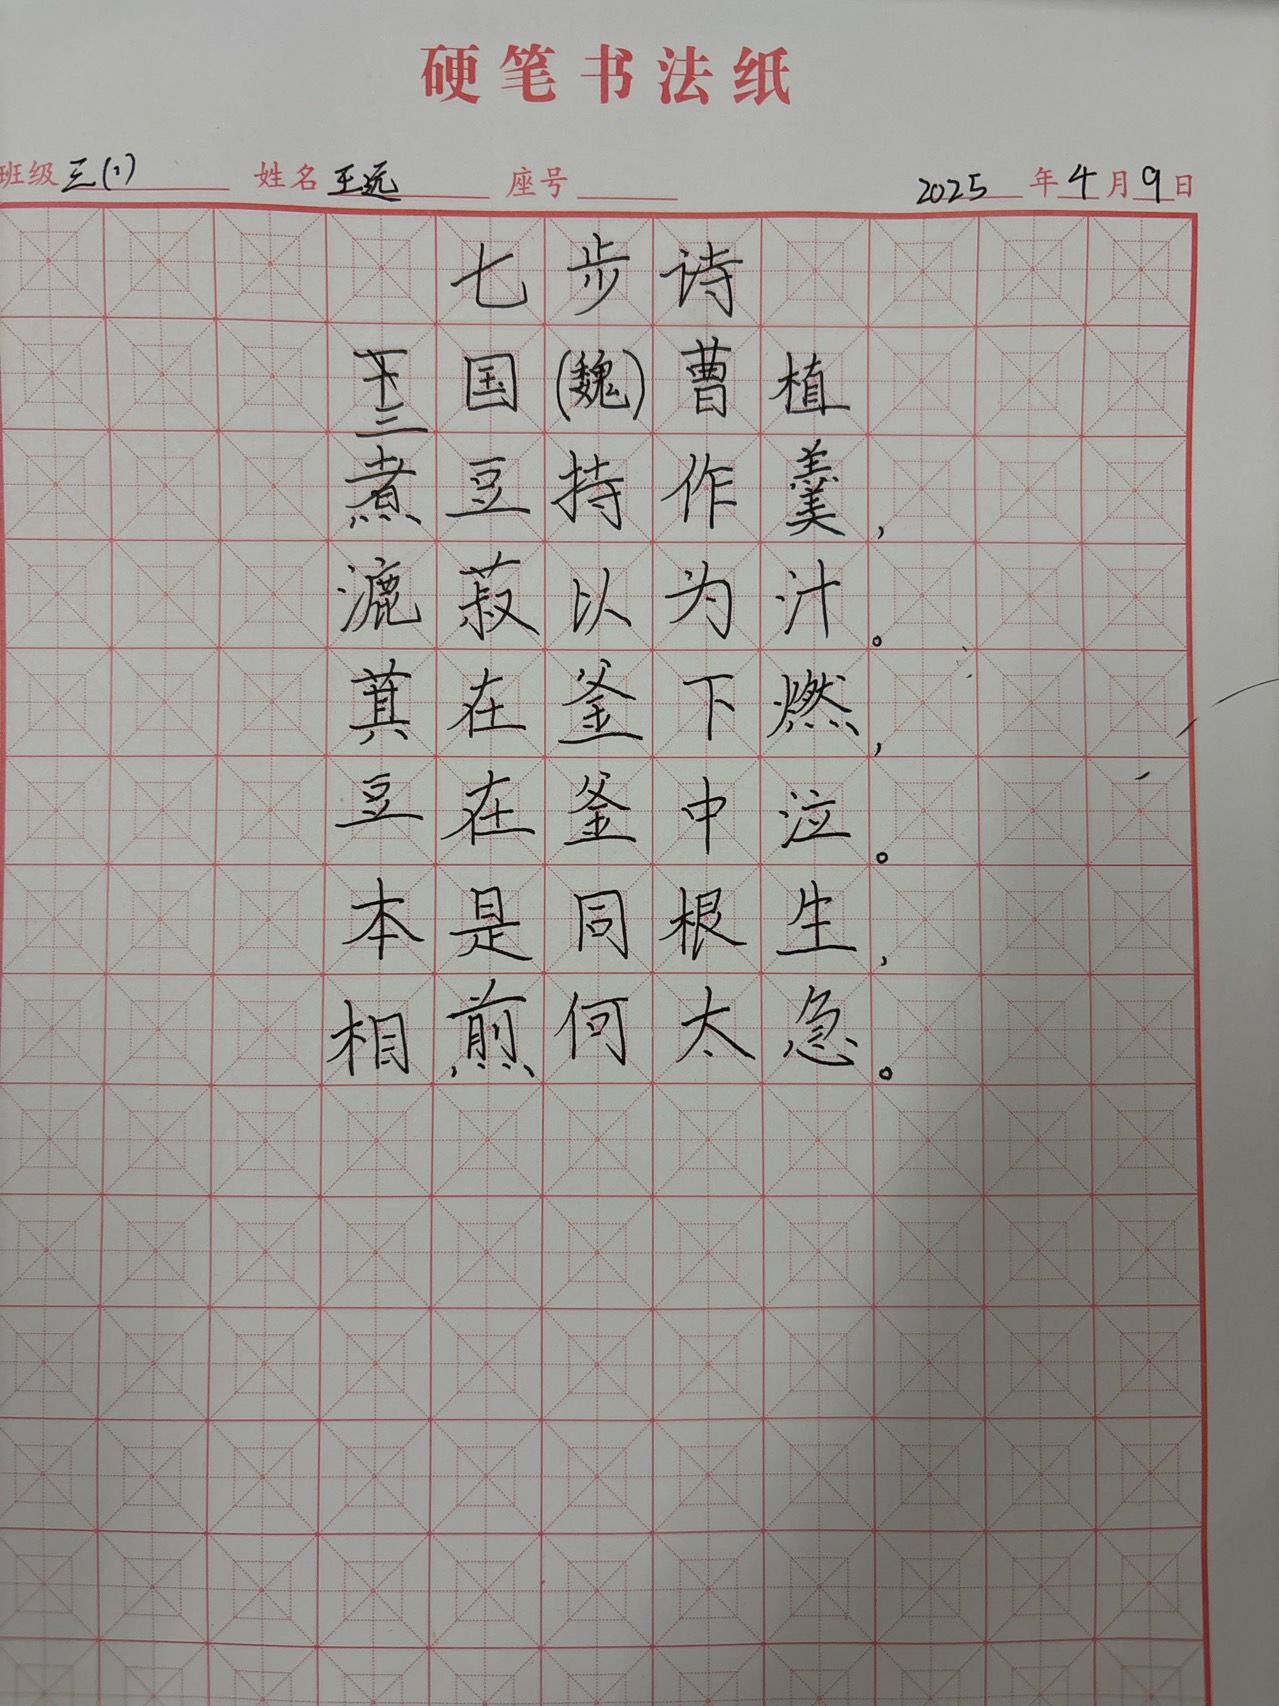 硬笔书法纸
班级 三(1) 姓名 王远 座号 2025 年 4 月 9 日
七步诗
三国(魏)曹植
煮豆持作羹,
漉菽以为汁。
萁在釜下燃,
豆在釜中泣。
本是同根生,
相煎何太急。